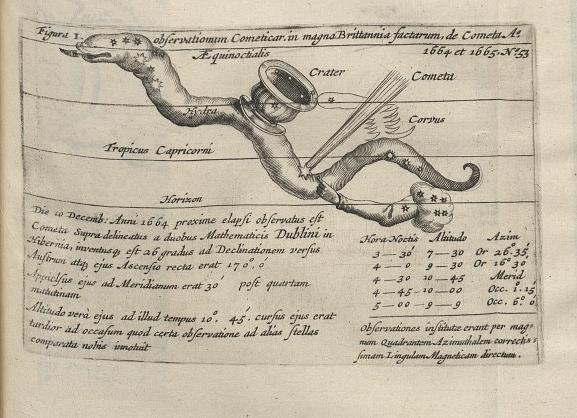 Figura 1. observationum Cometicar. in magna Brittannia factarum, de Cometa Aº
1664 et 1665. Nº 53
Æquinoctialis
Crater
Cometa
Hydra
Corvus
Tropicus Capricorni
Horizon
Die 10 Decemb: Anni 1664 proxime elapsi observatus est
Cometa Supra delineatus a duobus Mathematicis Dublini in
Hibernia, inventusq est 26 gradus ad Declinationem versus
Austrum atq ejus Ascensio recta erat 170°. 0'
Appulsus ejus ad Meridianum erat 30' post quartam
matutinam
Altitudo verà ejus ad illud tempus 10°. 45'. cursus ejus erat
tardior ad occasum quod certa observatione ad alias stellas
comparata nobis innotuit
Hora Noctis Altitudo Azim
3 — 30 7 — 30 Or 26°. 35'
4 — 0 9 — 30 Or 16° 30
4 — 30 10 — 45 Merid
4 — 45 10 — 00 Occ. 1°. 15
5 — 00 9 — 9 Occ. 6° 0'
Observationes institutæ erant per mag=
num Quadrantem Azimuthalem correctis=
simam Lingulam Magneticam directum.